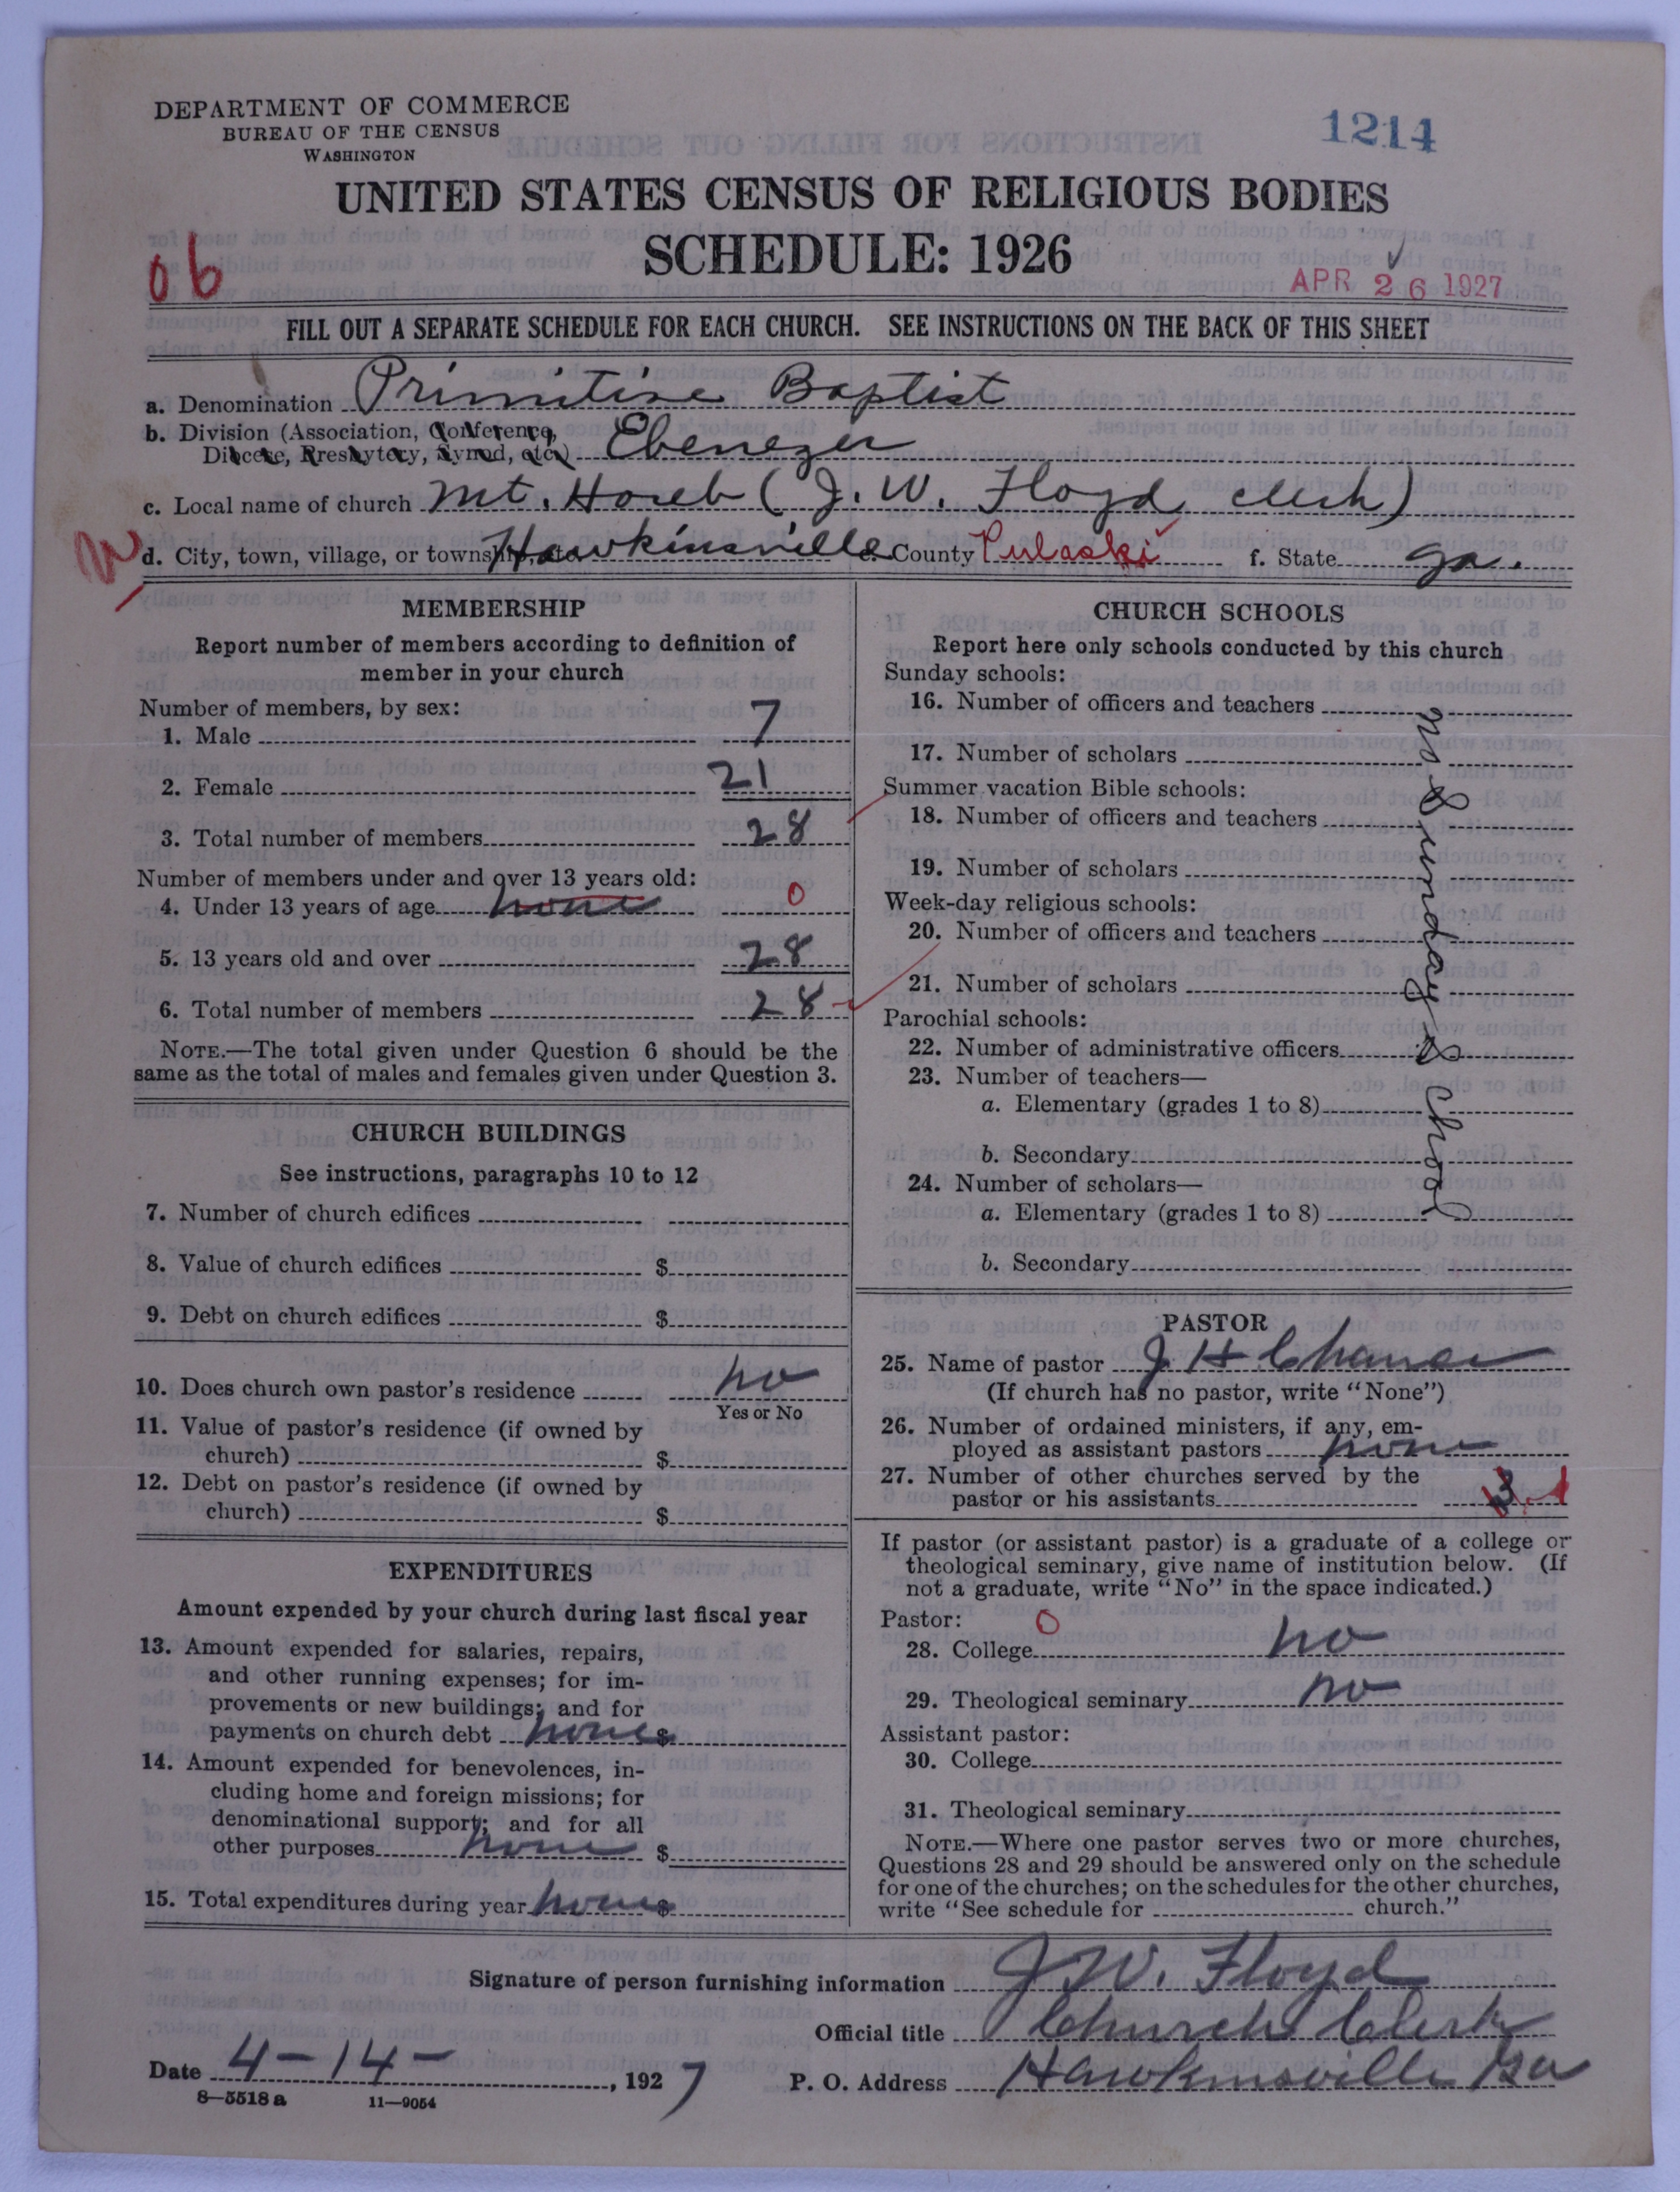 DEPARTMENT OF COMMERCE
BUREAU OF THE CENSUS
WASHINGTON
1214
UNITED STATES CENSUS OF RELIGIOUS BODIES
SCHEDULE: 1926
06
APR 26 1927
FILL OUT A SEPARATE SCHEDULE FOR EACH CHURCH. SEE INSTRUCTIONS ON THE BACK OF THIS SHEET
a. Denomination Primitive Baptist
b. Division (Association, Conference,
Diocese, Presbytery, Synod, etc.) Ebenezer
c. Local name of church Mt. Horeb (J. W. Floyd clerk)
d. City, town, village, or township, etc. Hawkinsville e. County Pulaski f. State Ga.
MEMBERSHIP
Report number of members according to definition of
member in your church
Number of members, by sex:
1. Male 7
2. Female 21
3. Total number of members 28
Number of members under and over 13 years old:
4. Under 13 years of age none 0
5. 13 years old and over 28
6. Total number of members 28
NOTE.—The total given under Question 6 should be the
same as the total of males and females given under Question 3.
CHURCH BUILDINGS
See instructions, paragraphs 10 to 12
7. Number of church edifices
8. Value of church edifices $
9. Debt on church edifices $
10. Does church own pastor's residence no
Yes or No
11. Value of pastor's residence (if owned by
church) $
12. Debt on pastor's residence (if owned by
church) $
EXPENDITURES
Amount expended by your church during last fiscal year
13. Amount expended for salaries, repairs,
and other running expenses; for im-
provements or new buildings; and for
payments on church debt none $
14. Amount expended for benevolences, in-
cluding home and foreign missions; for
denominational support; and for all
other purposes none $
15. Total expenditures during year none $
CHURCH SCHOOLS
Report here only schools conducted by this church
Sunday schools:
16. Number of officers and teachers
17. Number of scholars
Summer vacation Bible schools:
18. Number of officers and teachers
19. Number of scholars
Week-day religious schools:
20. Number of officers and teachers
21. Number of scholars
Parochial schools:
22. Number of administrative officers
23. Number of teachers—
a. Elementary (grades 1 to 8)
b. Secondary
24. Number of scholars—
a. Elementary (grades 1 to 8)
b. Secondary
no Sunday School
PASTOR
25. Name of pastor J H Chance
(If church has no pastor, write "None")
26. Number of ordained ministers, if any, em-
ployed as assistant pastors none
27. Number of other churches served by the
pastor or his assistants 3
If pastor (or assistant pastor) is a graduate of a college or
theological seminary, give name of institution below. (If
not a graduate, write "No" in the space indicated.)
Pastor: 0
28. College no
29. Theological seminary no
Assistant pastor:
30. College
31. Theological seminary
NOTE.—Where one pastor serves two or more churches,
Questions 28 and 29 should be answered only on the schedule
for one of the churches; on the schedules for the other churches,
write "See schedule for church."
Signature of person furnishing information J. W. Floyd
Official title Church Clerk
Date 4-14-, 1927 P. O. Address Hawkinsville Ga
8—5518 a 11—9054